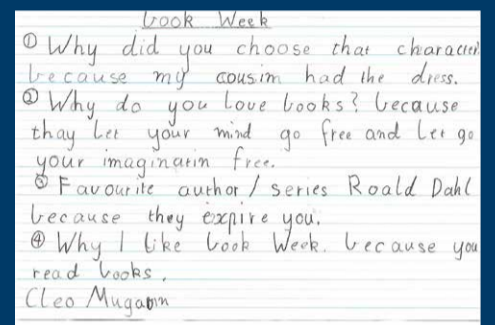 book Week
① Why did you choose that character.
because my cousim had the dress.
② Why do you love books? because
thay let your mind go free and let go
your imaginatin free.
③ Favourite author / series Roald Dahl
because they expire you.
④ Why I like book Week. because you
read books.
Cleo